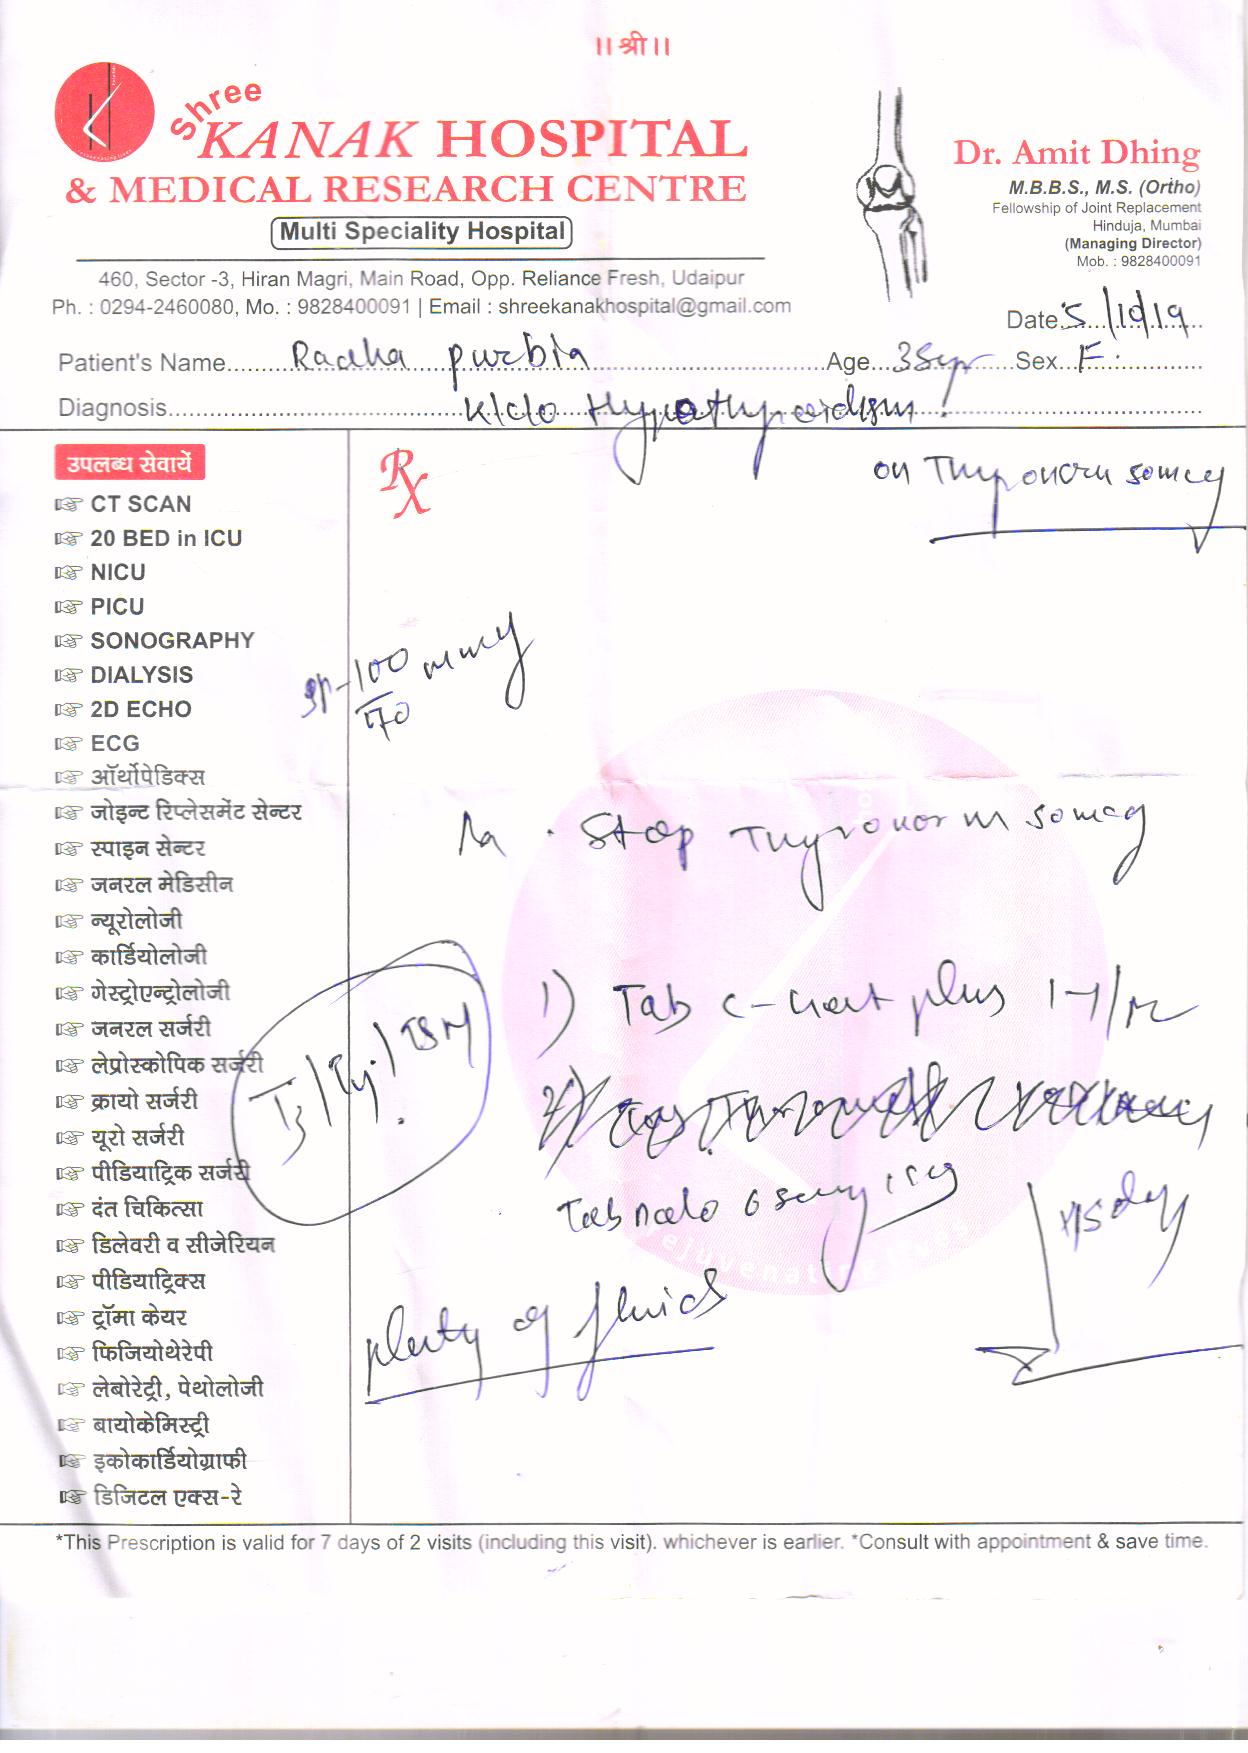 ।। श्री ।।
Shree
KANAK HOSPITAL
& MEDICAL RESEARCH CENTRE
Multi Speciality Hospital
460, Sector -3, Hiran Magri, Main Road, Opp. Reliance Fresh, Udaipur
Ph. : 0294-2460080, Mo. : 9828400091 | Email : shreekanakhospital@gmail.com
Dr. Amit Dhing
M.B.B.S., M.S. (Ortho)
Fellowship of Joint Replacement
Hinduja, Mumbai
(Managing Director)
Mob. : 9828400091
Date 5/10/19
Patient's Name Radha Purbia Age 35yr Sex F
Diagnosis K/c/o Hypothyroidism
on Thyronorm 50mcg
Rx
उपलब्ध सेवायें
CT SCAN
20 BED in ICU
NICU
PICU
SONOGRAPHY
DIALYSIS
2D ECHO
ECG
ऑर्थोपेडिक्स
जोइन्ट रिप्लेसमेंट सेन्टर
स्पाइन सेन्टर
जनरल मेडिसीन
न्यूरोलोजी
कार्डियोलोजी
गेस्ट्रोएन्ट्रोलोजी
जनरल सर्जरी
लेप्रोस्कोपिक सर्जरी
क्रायो सर्जरी
यूरो सर्जरी
पीडियाट्रिक सर्जरी
दंत चिकित्सा
डिलेवरी व सीजेरियन
पीडियाट्रिक्स
ट्रॉमा केयर
फिजियोथेरेपी
लेबोरेट्री, पेथोलोजी
बायोकेमिस्ट्री
इकोकार्डियोग्राफी
डिजिटल एक्स-रे
BP-100/70 mmHg
Stop Thyronorm 50mcg
T3/T4/TSH
1) Tab plus
Tab
plenty of fluids
rejuvenating lives
*This Prescription is valid for 7 days of 2 visits (including this visit). whichever is earlier. *Consult with appointment & save time.